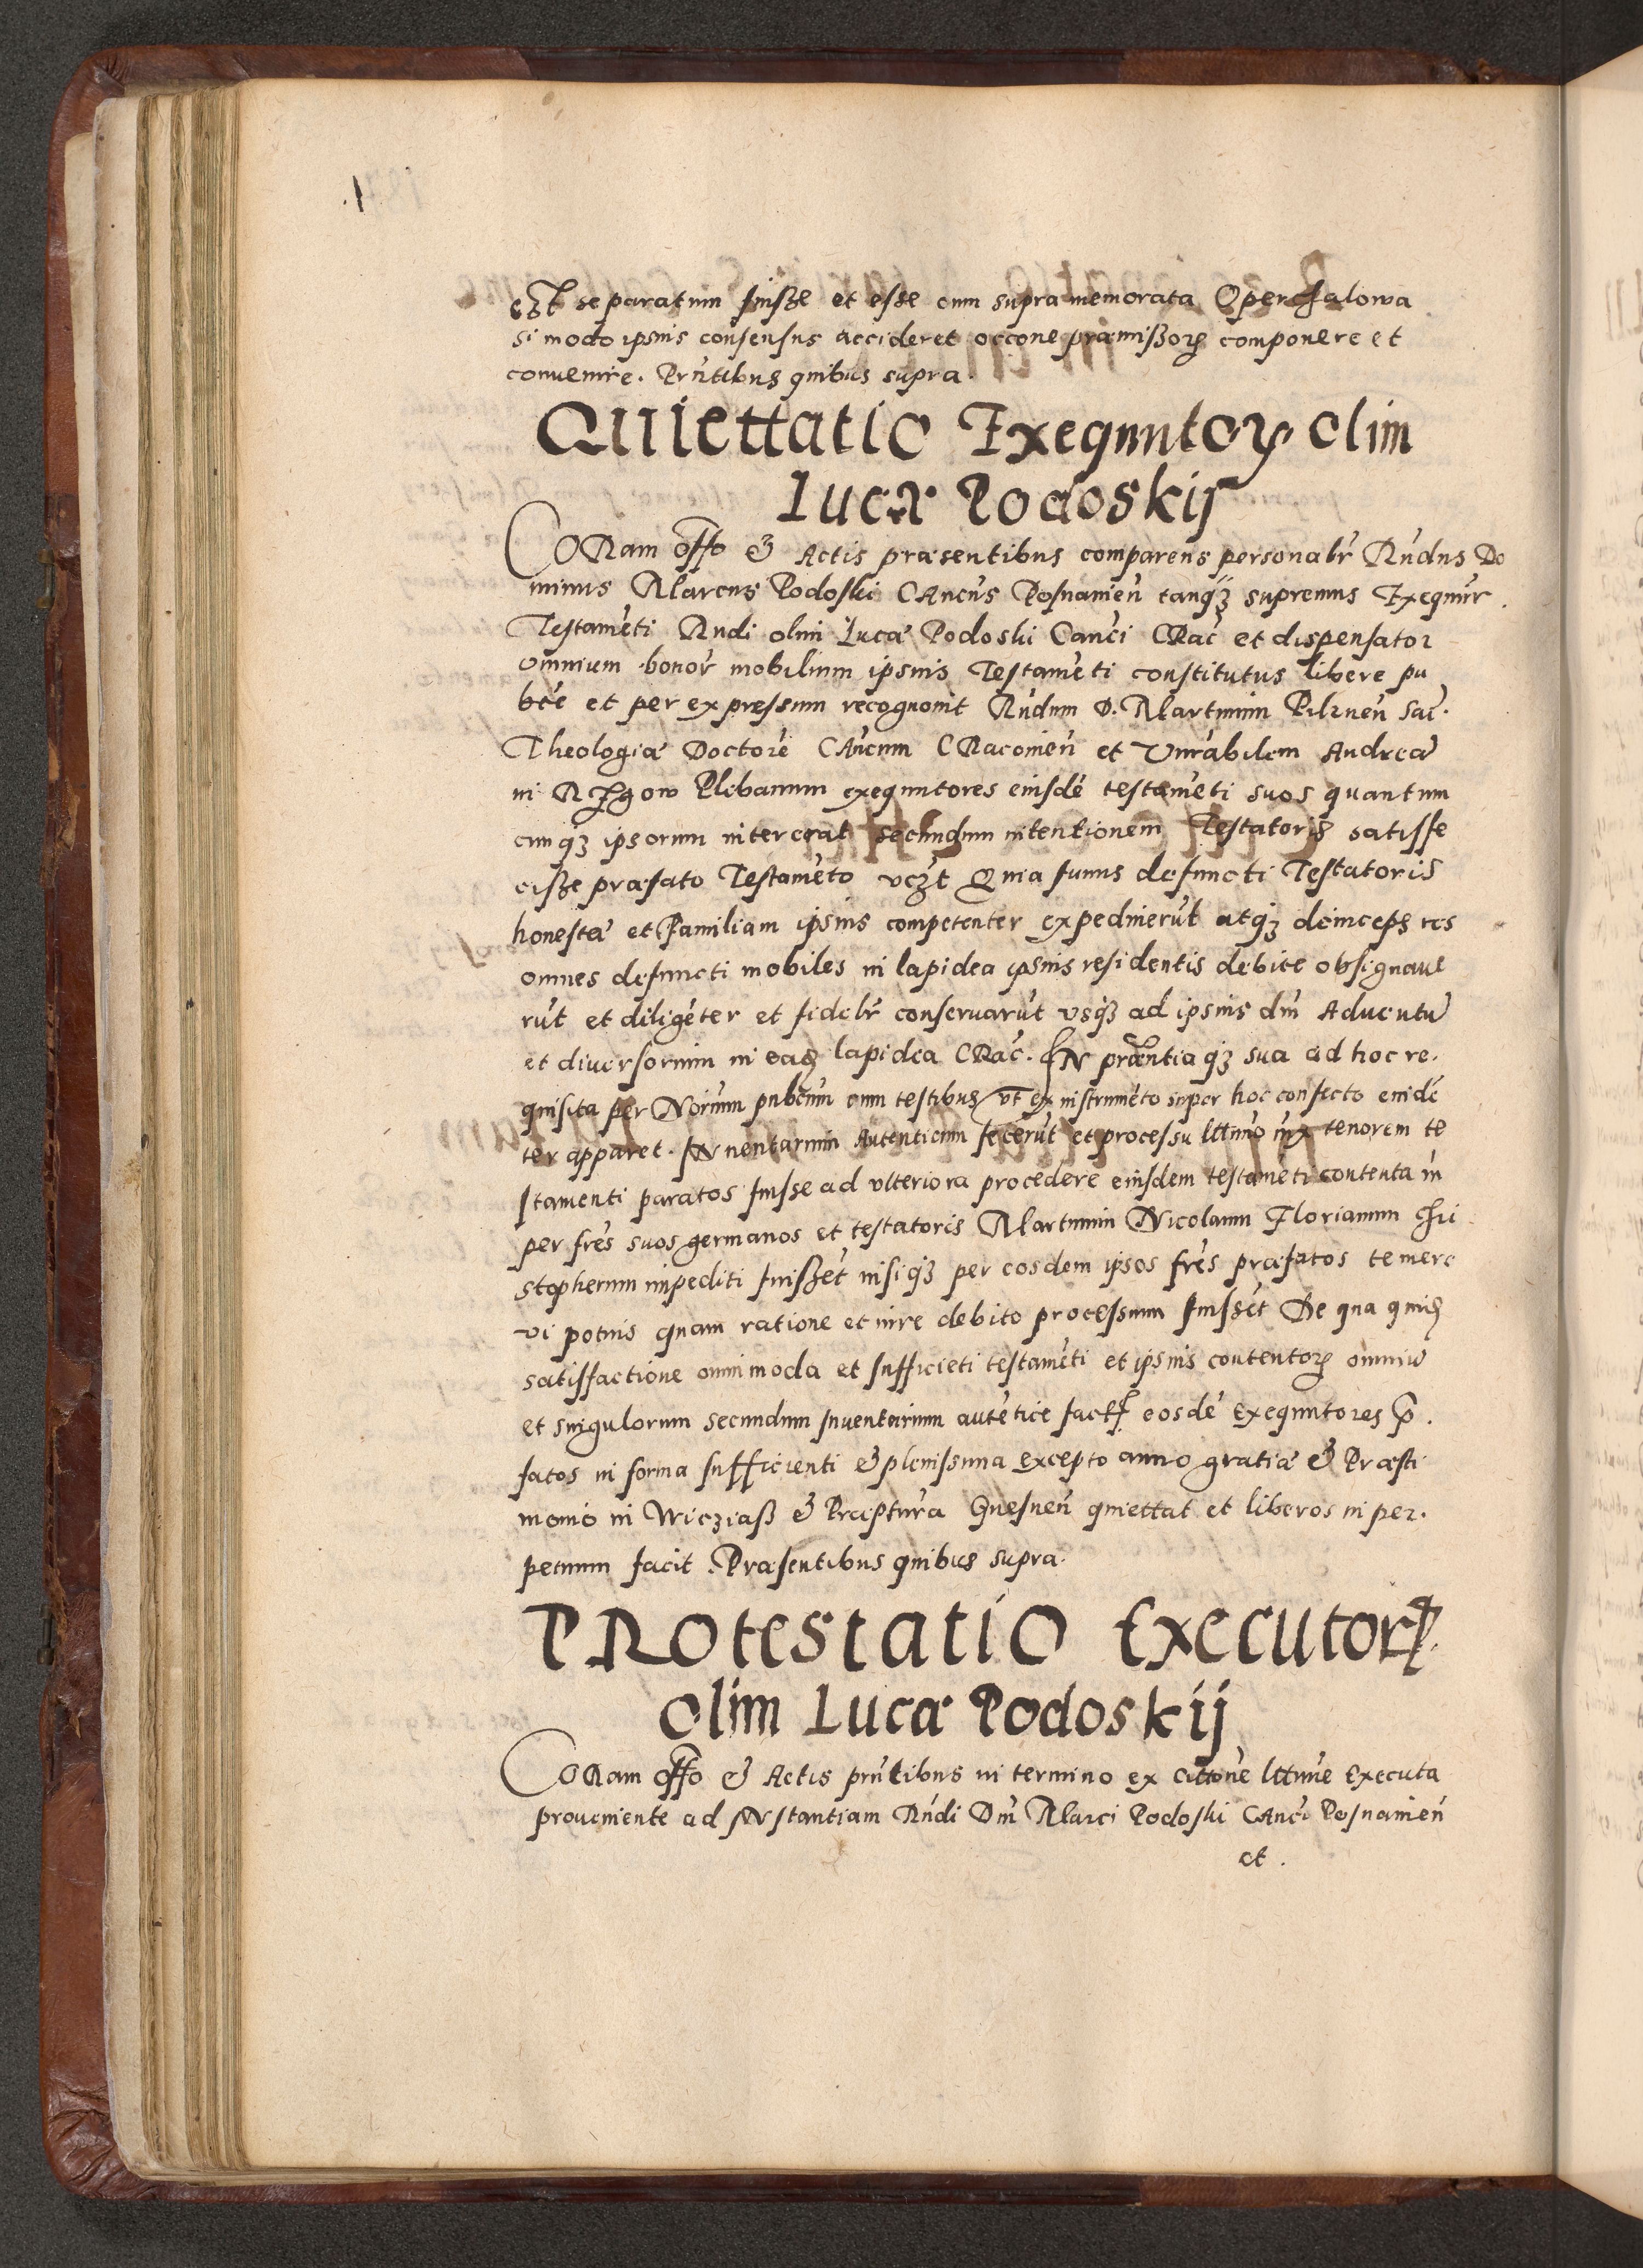 .1
est separatum fuisse et esse cum supra memorata Opengalowa
si modo ipsius consensus accideret occone præmissoꝝ componere et
conuenire. Prñtibus quibus supra.
Quiettatio Exequutoꝝ olim
Lucæ Podoskij
CORam offo & Actis præsentibus comparens personalr̃ Rñdus Do
minus Marcus Podoski CAncus Posnanień tanqꝫ supremus Exequtor
Testamẽti Rndi olim Lucæ Podoski Canci CRac̃ et dispensator
omnium bonor̃ mobilium ipsius Testamẽti constitutus libere pu
bce et per expressum recognouit Rñdum D. Martinum Pilznen̄ Sac̃.
Theologiæ Doctorẽ CAncum CRacouien̄ et Vnrabilem Andreã
in Rzgow Plebanum exequutores eiusdẽ testamẽti suos quantum
cunqꝫ ipsorum intererat secundum intentionem Testatoris satisfe
cisse præfato Testamẽto vcꝫt Quia funus defuncti Testatoris
honestã et Familiam ipsius competenter expediuerũt atqꝫ deinceps res
omnes defuncti mobiles in lapidea ipsius residentis debite obsignaue
rũt et diligẽter et fidelr̃ conseruarũt vsqꝫ ad ipsius dñi Aduentũ
et diuersorium in eadꝫ lapidea CRac̃. IN præntia qꝫ sua ad hoc re.
quisita per Norium pubcum cum testibus vt ex instrumẽto super hoc confecto euidẽ
ter apparet. INuentarium Autenticum fecerũt et processu lttimo iux tenorem te
stamenti paratos fuisse ad vlteriora procedere eiusdem testamẽti contenta ni
per frẽs suos germanos et testatoris Martinum Nicolaum Florianum Chri
stopherum impediti fuissẽt nisi qꝫ per eosdem ipsos frẽs præfatos temere
vi potius quam ratione et iure debito processum fuissẽt De qua quidꝫ
satisfactione omnimoda et sufficiẽti testamẽti et ipsius contentoꝝ omniũ
et singulorum secundum Inuentarium autẽtice fact eosdẽ Exequutores p̃.
fatos in forma sufficienti & plenissima excepto anno gratiæ & Præsti
monio in Wicziass & Præptura Gnesnen̄ quiettat et liberos in per.
petuum facit. Præsentibus quibus supra.
PROtestatio Executorꝝ.
olim Lucæ Podoskij
CORam offo & Actis prñtibus in termino ex cittone lttime Executa
proueniente ad INstantiam Rñdi Dñi Marci Podoski CAnci Posnanień
et.